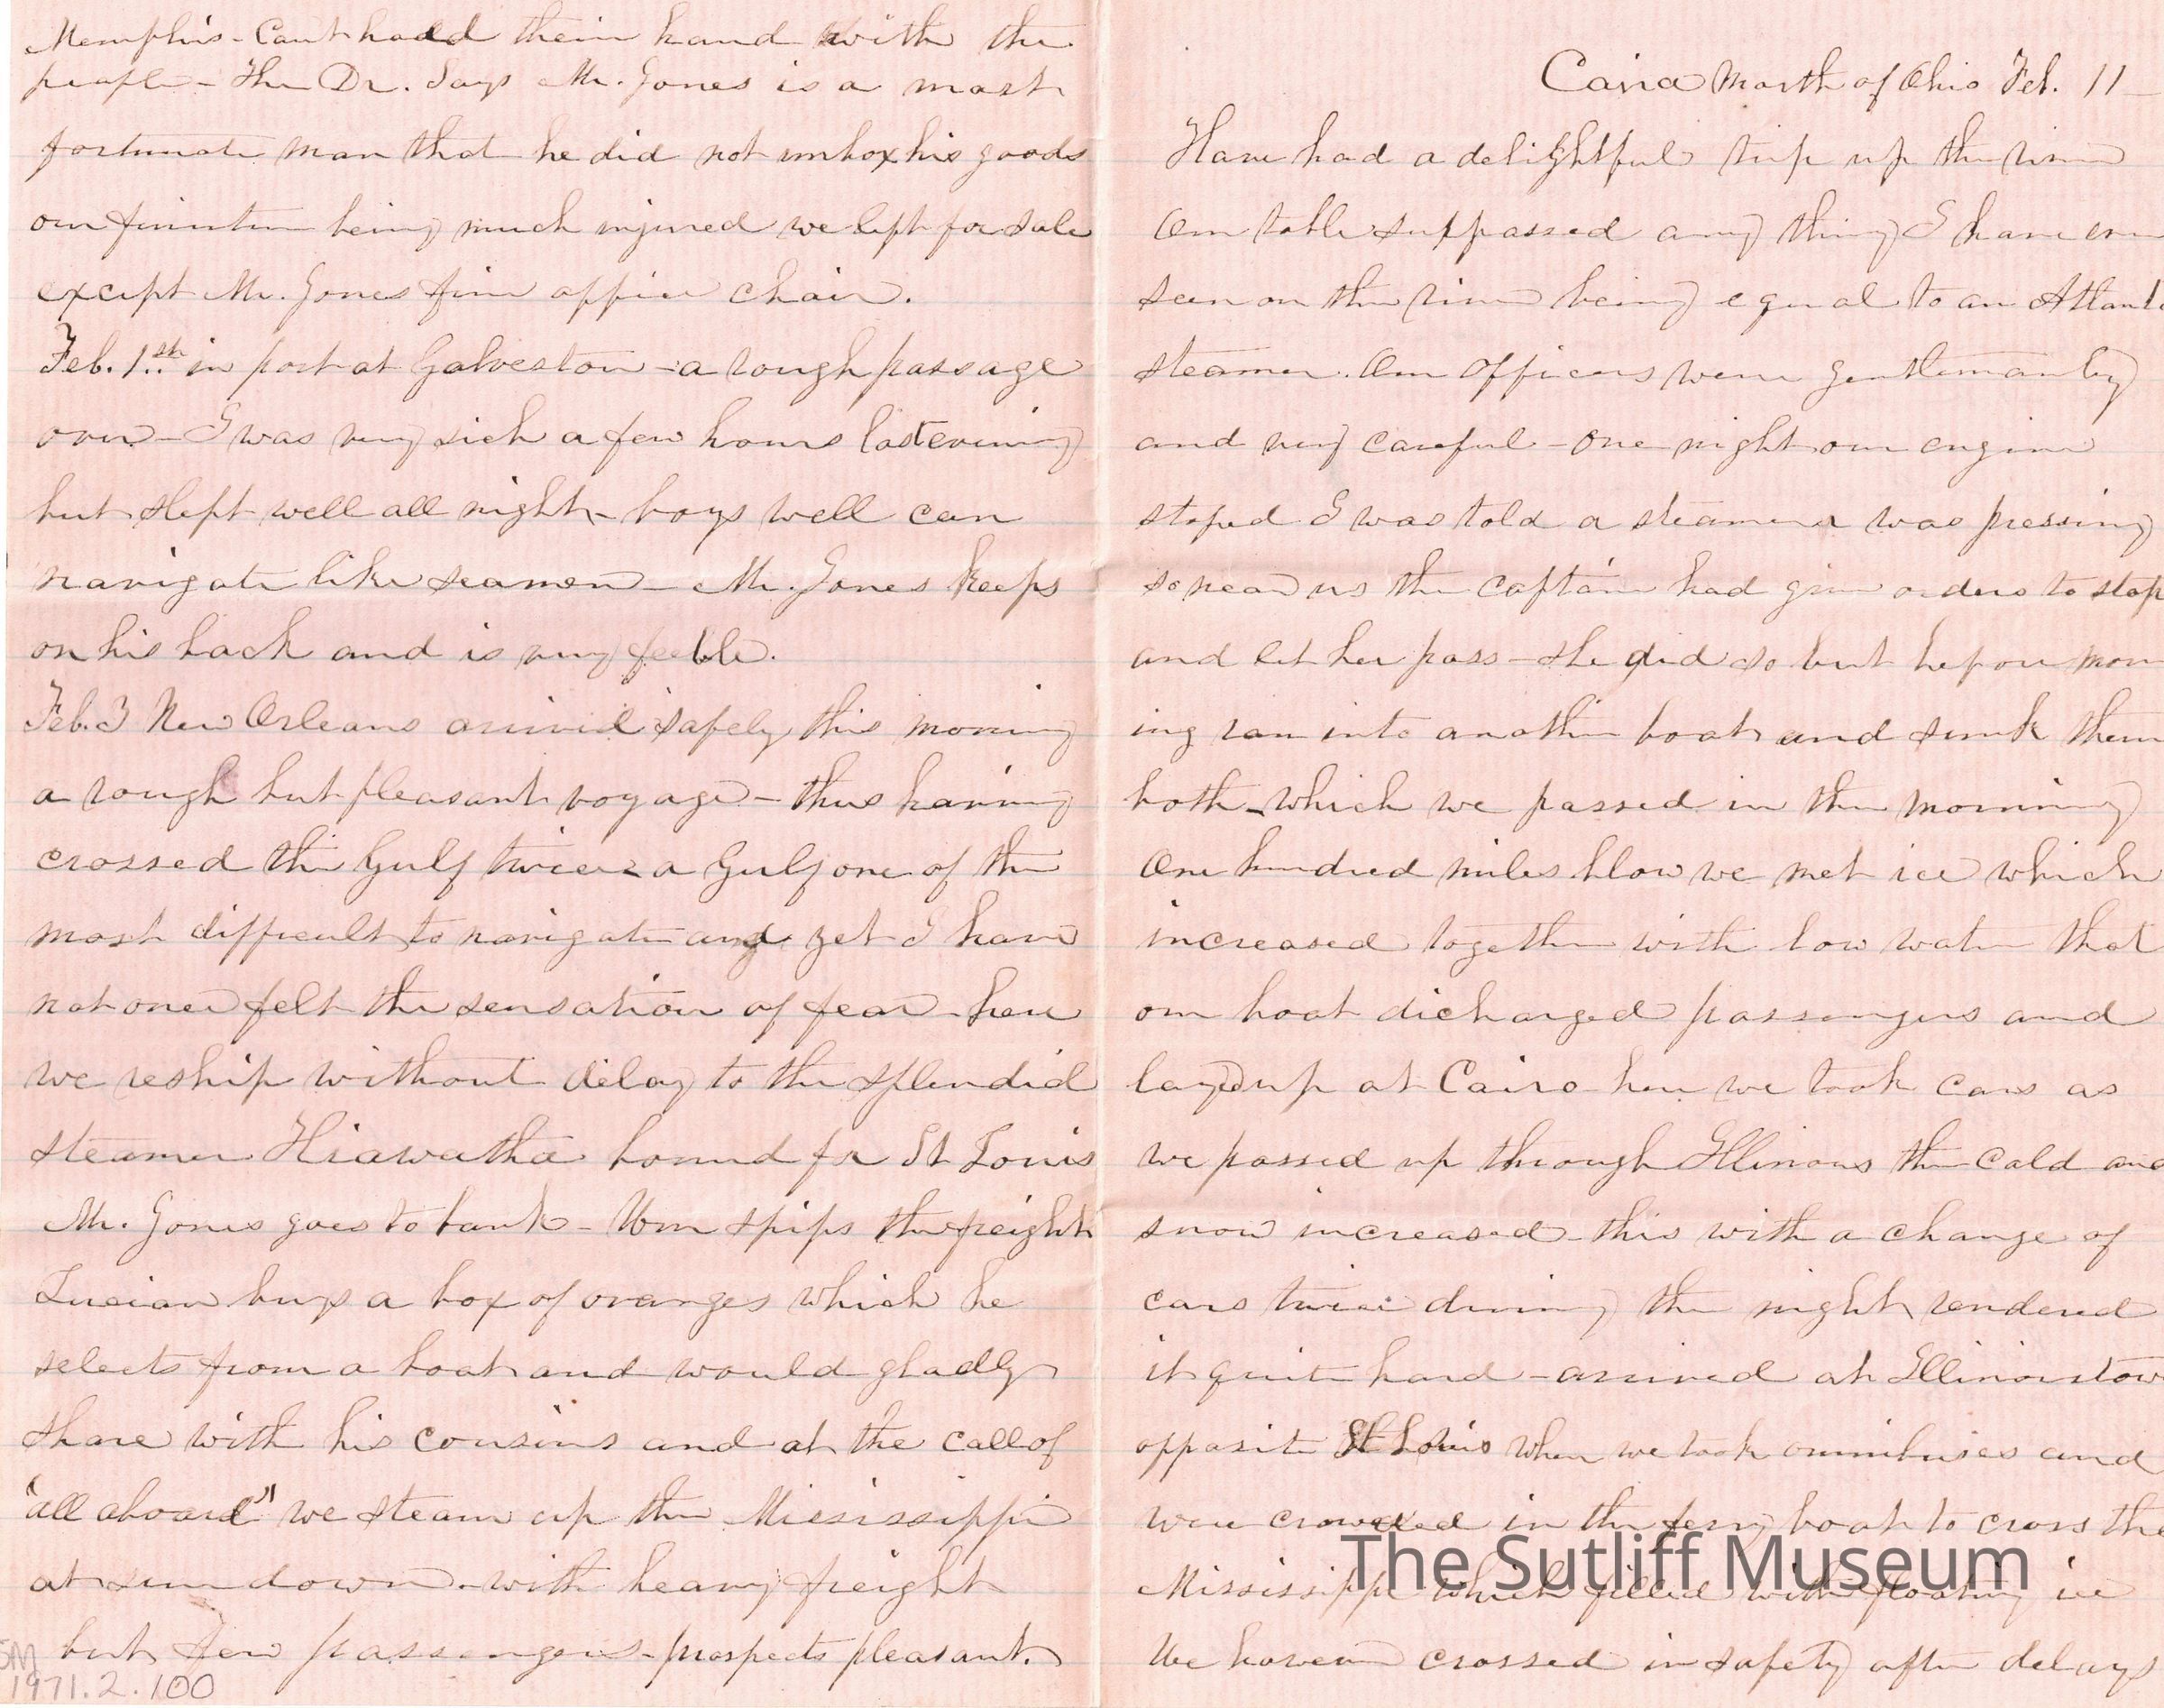 Memphis - Cant hold their hand with the
people - the Dr. Says Mr. Jones is a most
fortunate man that he did not unbox his goods
our furniture being much injured we left for sale
except Mr. Jones fine office chair.
Feb. 1st in port at Galveston - a rough passage
over - I was very sick a few hours last evening
but slept well all night - boys well can
navigate like seamen - Mr. Jones keeps
on his back and is very feeble.
Feb. 3 New Orleans arrived safely this morning
a rough but pleasant voyage - thus having
crossed the Gulf twice - a Gulf one of the
most difficult to navigate and yet I have
not once felt the sensation of fear - here
we reship without delay to the splendid
steamer Hiawatha bound for St Louis
Mr. Jones goes to bank - Wm ships the freight
Lucian buys a box of oranges which he
selects from a boat and would gladly
share with his cousins and at the call of
"all aboard" we steam up the Miesissippi
at sundown - with heavy freight
but few passengers - prospects pleasant.
SM
1971.2.100
Cairo Mouth of Ohio Feb. 11 -
Have had a delightful trip up the river
Our table surpassed any thing I have ever
seen on the river being equal to an Atlantic
steamer. Our officers were gentlemanly
and very careful - one night our engine
stoped I was told a steamer was pressing
so near us the captain had given orders to stop
and let her pass - she did so but before morn
ing ran into another boat and sunk them
both - which we passed in the morning
One hundred miles blow we met ice which
increased together with low water that
our boat dicharged passengers and
layed up at Cairo here we took cars as
we passed up through Illinois the cold and
snow increased this with a change of
cars twice during the night rendered
it quite hard - arrived at Illinoistown
opposite St Louis when we took omnibuses and
were crowded in the ferry boat to cross the
Mississippi which filled with floating ice
We however crossed in safety after delays
The Sutliff Museum